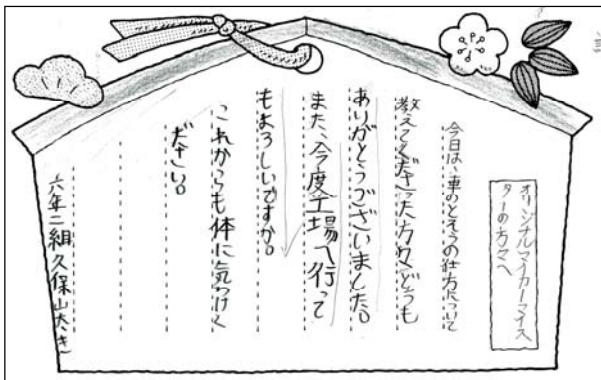 オリジナルマイカーマイス
ターの方々へ
今日は、車のとそうの仕方について
教えてくださった方々どうも
ありがとうございました。
また、今度工場へ行って
もよろしいですか。
これからも体に気つけく
ださい。
六年二組久保山大き